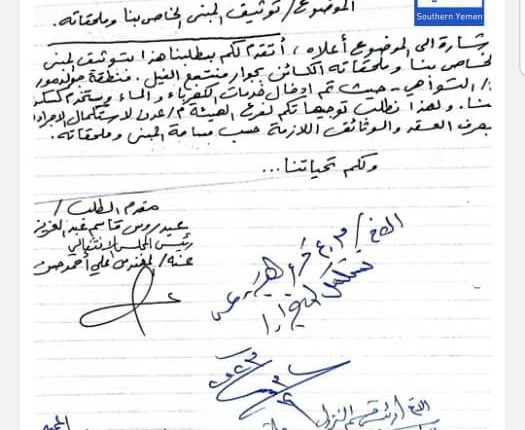 Southern Yemen
الموضوع/ توثيق المبنى الخاص بنا وملحقاته.
إشارة الى الموضوع أعلاه، أتقدم لكم بطلبنا هذا بتوثيق لمبنى
الخاص بنا وملحقاته الكائن بجوار منتجع الفيل. منطقة جولدمور
م/ التواهي - حيث تم ادخال خدمات الكهرباء والماء ويستخدم كسكن
لنا. ولهذا نطلب توجيهاتكم لفرع الهيئة م/عدن لاستكمال الاجراءات
بصرف العقد والوثائق اللازمة حسب مساحة المبنى وملحقاته.
ولكم تحياتنا...
مقدم الطلب/
عيدروس قاسم عبدالعزيز
رئيس المجلس الانتقالي
عنه/ لمهندس علي أحمد حسن
الأخ/ م. ع فرع الهيئة عدن
الأخ/ رئيس قسم النزل